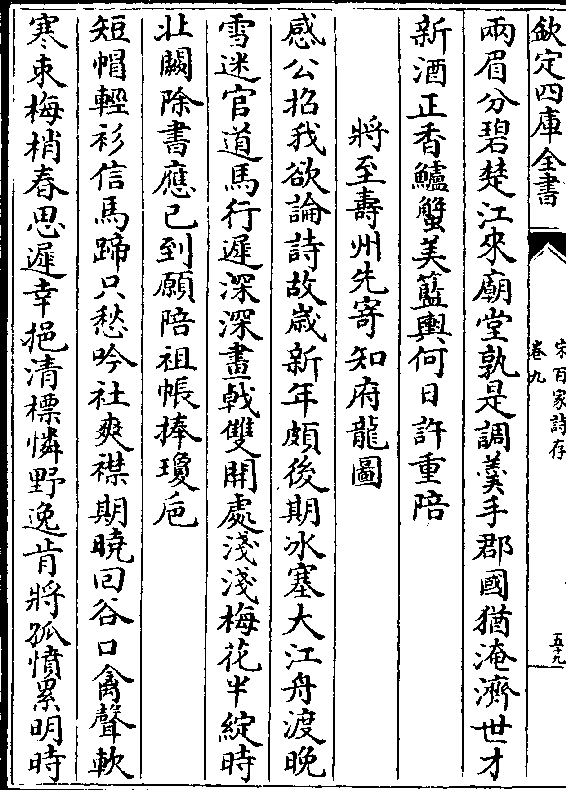 欽定四庫全書
宋百家詩存
卷九
五十九
兩眉分碧楚江來廟堂孰是調羮手郡國猶淹濟世才
新酒正香鱸蟹美籃輿何日許重陪
將至壽州先寄知府龍圖
感公招我欲論詩故歲新年頗後期冰塞大江舟渡晚
雪迷官道馬行遲深深畫戟雙開處淺淺梅花半綻時
北闕除書應已到願陪祖帳捧瓊卮
短帽輕衫信馬蹄只愁吟社爽襟期曉回谷口禽聲軟
寒朿梅梢春思遲幸挹清標憐野逸肯將孤憤累明時